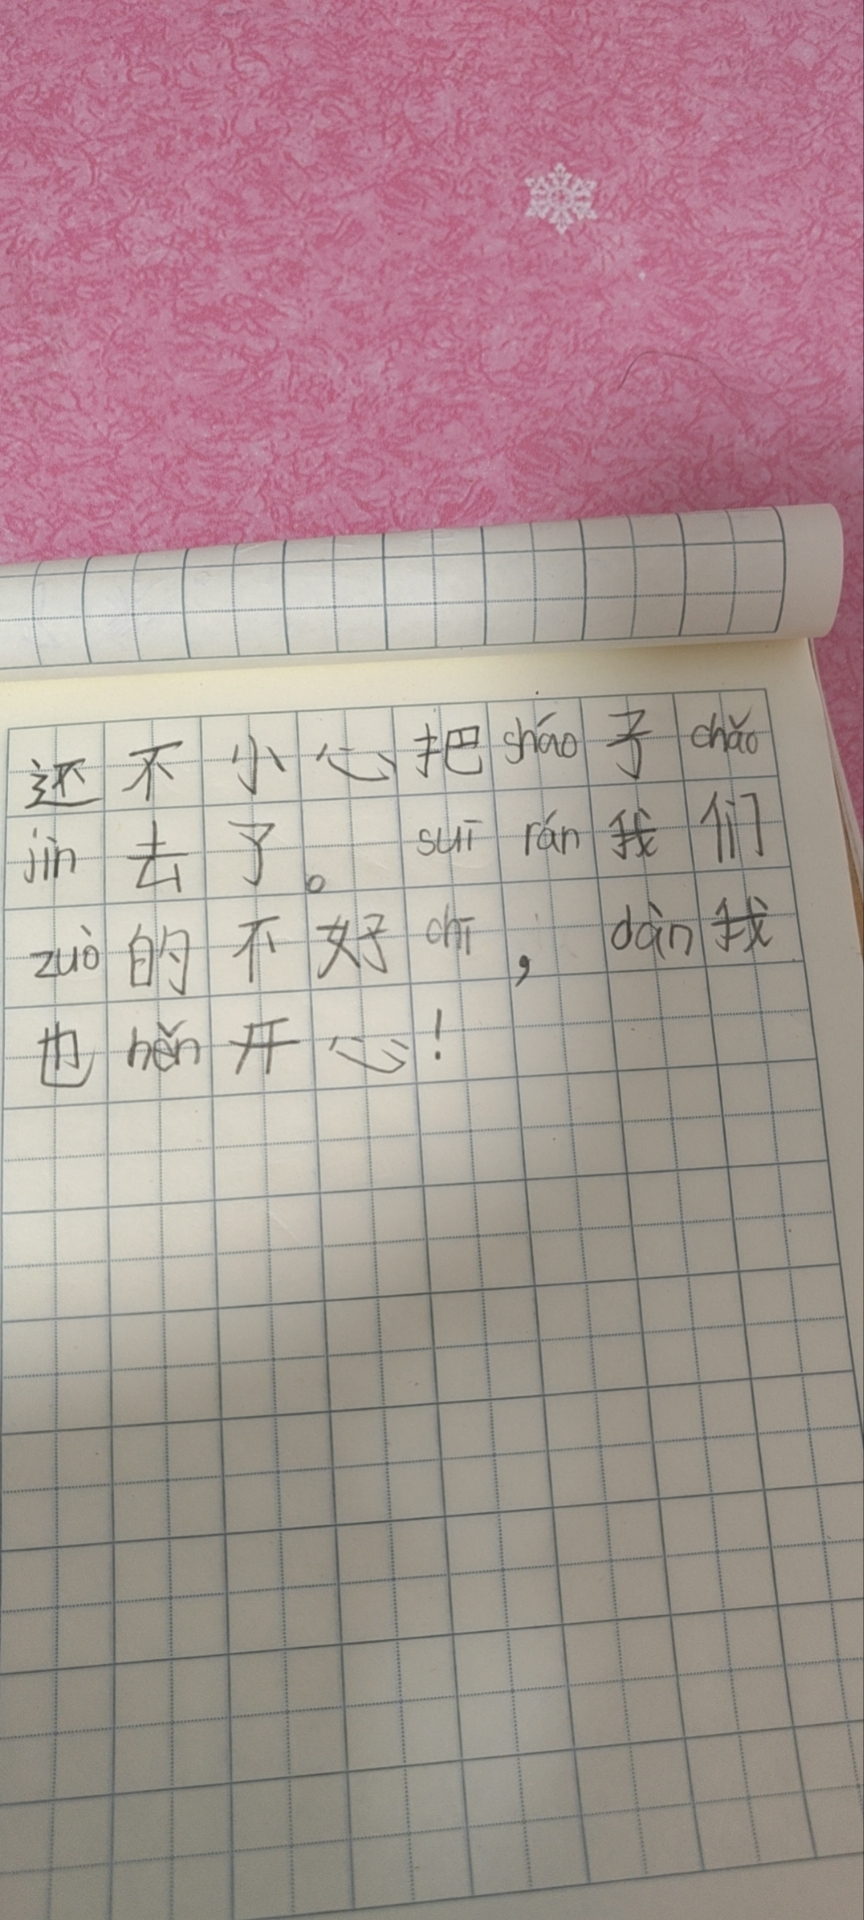 还不小心把sháo子chǎo
jìn去了。suī rán我们
zuò的不好chī，dàn我
也hěn开心！